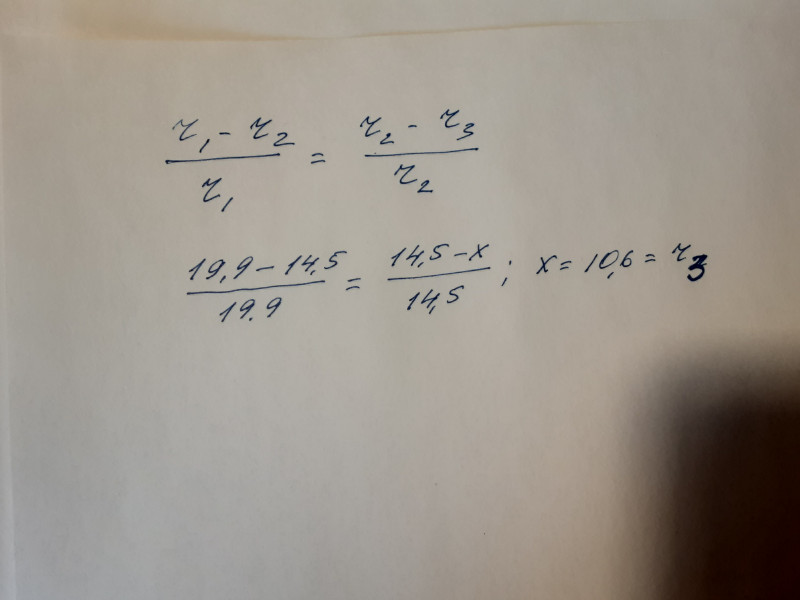 r₁ - r₂ / r₁ = r₂ - r₃ / r₂
19,9 - 14,5 / 19.9 = 14,5 - x / 14,5 ; x = 10,6 = r₃